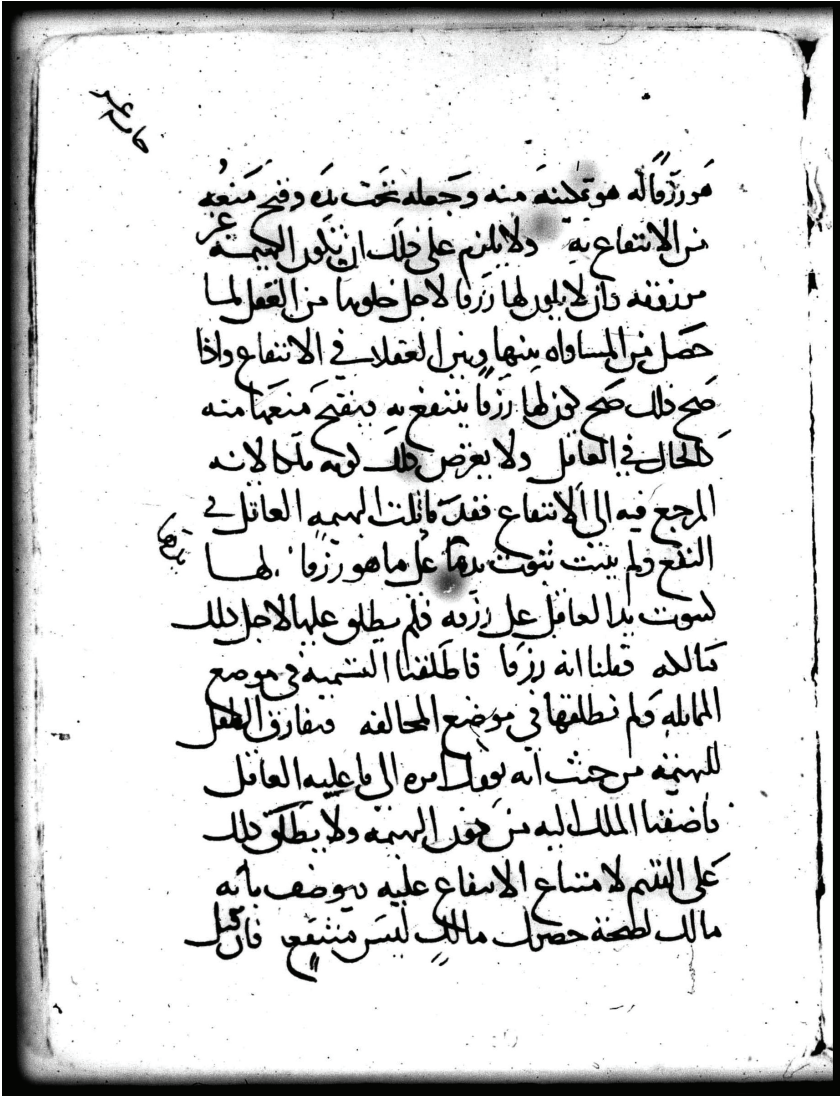 خامس عشر
هو رزقا له هو تمكينه منه وجعله تحت يده وقبح منعه
من الانتفاع به ولا يلزم على ذلك ان تكون البهيمة غير
مرزوقه وان لا يكون لها رزقا لاجل خلوها من العقل لما
حصل من المساواه بينها وبين العقلا في الانتفاع واذا
صح ذلك صح كون لها رزقا ينتفع به فيقبح منعها منه
كالحال في العاقل ولا يعرض ذلك كونه ملكا لانه
المرجع فيه الى الانتفاع فقد ماثلت البهيمه العاقل في
النفع ولم يثبت ثبوت يدها على ما هو رزقا لها
يدها
كثبوت يد العاقل على رزقه فلم يطلق عليها لاجل ذلك
مالكه قلنا انه رزقا فاطلقنا التسميه في موضع
المماثله ولم نطلقها في موضع المخالفه ففارق الطفل
للبهيمه من حيث انه يؤول امره الى ما عليه العاقل
فاضفنا الملك اليه من دون البهيمه ولا يطلق ذلك
على القديم لامتناع الانتفاع عليه فيوصف بانه
مالك لصحة مالك ليس منتفع فان قيل